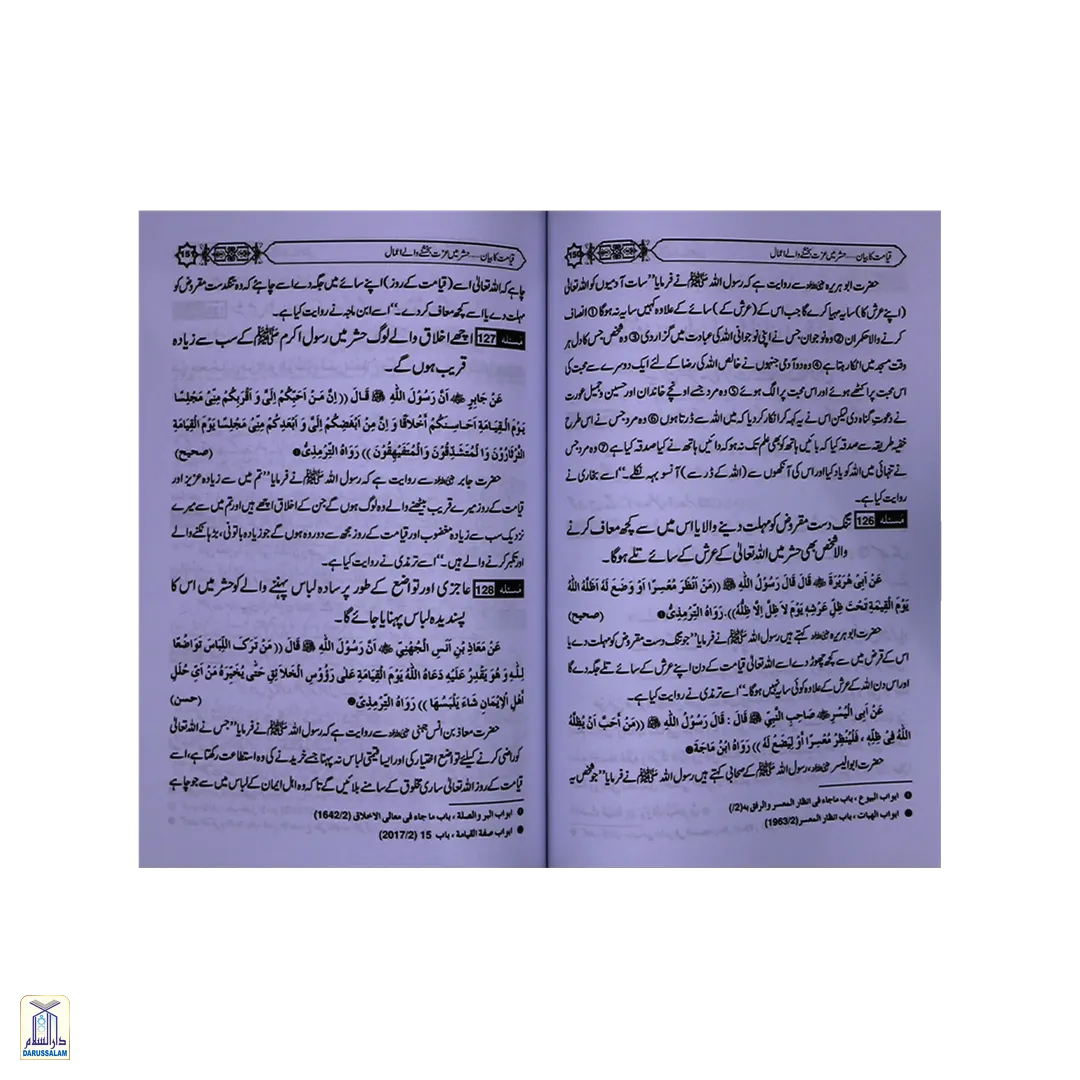 قیامت کا بیان — حشر میں عزت بخشنے والے اعمال
150
حضرت ابو ہریرہ رضی اللہ عنہ سے روایت ہے کہ رسول اللہ ﷺ نے فرمایا ’’سات آدمیوں کو اللہ تعالیٰ
(اپنے عرش کا) سایہ مہیا کرے گا جب اس کے (عرش کے) سائے کے علاوہ کہیں سایہ نہ ہوگا ① انصاف
کرنے والا حکمران ② وہ نوجوان جس نے اپنی نوجوانی اللہ کی عبادت میں گزار دی ③ وہ شخص جس کا دل ہر
وقت مسجد میں اٹکا رہتا ہے ④ وہ دو آدمی جنہوں نے خالص اللہ کی رضا کے لئے ایک دوسرے سے محبت کی
اس محبت پر اکٹھے ہوئے اور اس محبت پر الگ ہوئے ⑤ وہ مرد جسے اونچے خاندان اور حسین و جمیل عورت
نے دعوتِ گناہ دی لیکن اس نے یہ کہہ کر انکار کر دیا کہ میں اللہ سے ڈرتا ہوں ⑥ وہ مرد جس نے اس طرح
خفیہ طریقہ سے صدقہ کیا کہ بائیں ہاتھ کو بھی علم تک نہ ہو کہ دائیں ہاتھ نے کیا صدقہ کیا ہے ⑦ وہ مرد جس
نے تنہائی میں اللہ کو یاد کیا اور اس کی آنکھوں سے (اللہ کے ڈر سے) آنسو بہہ نکلے۔‘‘ اسے بخاری نے
روایت کیا ہے۔
مسئلہ 126 تنگ دست مقروض کو مہلت دینے والا یا اس میں سے کچھ معاف کرنے
والا شخص بھی حشر میں اللہ تعالیٰ کے عرش کے سائے تلے ہوگا۔
عَنْ اَبِیْ هُرَيْرَةَ ؓ قَالَ قَالَ رَسُوْلُ اللّٰهِ ﷺ ((مَنْ اَنْظَرَ مُعْسِرًا اَوْ وَضَعَ لَهُ اَظَلَّهُ اللّٰهُ
يَوْمَ الْقِيٰمَةِ تَحْتَ ظِلِّ عَرْشِهٖ يَوْمَ لاَ ظِلَّ اِلَّا ظِلُّهُ)). رَوَاهُ التِّرْمِذِيُّ ❶ (صحیح)
حضرت ابو ہریرہ رضی اللہ عنہ کہتے ہیں رسول اللہ ﷺ نے فرمایا ’’جو تنگ دست مقروض کو مہلت دے یا
اس کے قرض میں سے کچھ چھوڑ دے اسے اللہ تعالیٰ قیامت کے دن اپنے عرش کے سائے تلے جگہ دے گا
اور اس دن اللہ کے عرش کے علاوہ کوئی سایہ نہیں ہوگا۔‘‘ اسے ترمذی نے روایت کیا ہے۔
عَنْ اَبِی الْيَسَرِ ؓ صَاحِبِ النَّبِيِّ ﷺ قَالَ : قَالَ رَسُوْلُ اللّٰهِ ﷺ ((مَنْ اَحَبَّ اَنْ يُظِلَّهُ
اللّٰهُ فِیْ ظِلِّهٖ ، فَلْيُنْظِرْ مُعْسِرًا اَوْ لِيَضَعْ لَهُ )) رَوَاهُ ابْنُ مَاجَةَ ❷
حضرت ابوالیسر رضی اللہ عنہ، رسول اللہ ﷺ کے صحابی کہتے ہیں رسول اللہ ﷺ نے فرمایا ’’جو شخص یہ
❶ ابواب البیوع ، باب ماجاء فی انظار المعسر والرفق به (2/)
❷ ابواب الهبات ، باب انظار المعسر (1963/2)
قیامت کا بیان — حشر میں عزت بخشنے والے اعمال
151
چاہے کہ اللہ تعالیٰ اسے (قیامت کے روز) اپنے سائے میں جگہ دے اسے چاہئے کہ وہ تنگدست مقروض کو
مہلت دے یا اسے کچھ معاف کر دے۔‘‘ اسے ابن ماجہ نے روایت کیا ہے۔
مسئلہ 127 اچھے اخلاق والے لوگ حشر میں رسول اکرم ﷺ کے سب سے زیادہ
قریب ہوں گے۔
عَنْ جَابِرٍ ؓ اَنَّ رَسُوْلَ اللّٰهِ ﷺ قَالَ ((اِنَّ مِنْ اَحَبِّكُمْ اِلَیَّ وَ اَقْرَبِكُمْ مِنِّیْ مَجْلِسًا
يَوْمَ الْقِيَامَةِ اَحَاسِنَكُمْ اَخْلَاقًا وَ اِنَّ مِنْ اَبْغَضِكُمْ اِلَیَّ وَ اَبْعَدِكُمْ مِنِّیْ مَجْلِسًا يَوْمَ الْقِيَامَةِ
الثَّرْثَارُوْنَ وَ الْمُتَشَدِّقُوْنَ وَالْمُتَفَيْهِقُوْنَ )) رَوَاهُ التِّرْمِذِيُّ ❶ (صحیح)
حضرت جابر رضی اللہ عنہ سے روایت ہے کہ رسول اللہ ﷺ نے فرمایا ’’تم میں سے زیادہ عزیز اور
قیامت کے روز میرے قریب بیٹھنے والے وہ لوگ ہوں گے جن کے اخلاق اچھے ہیں اور تم میں سے میرے
نزدیک سب سے زیادہ مغضوب اور قیامت کے روز مجھ سے دور وہ ہوں گے جو زیادہ باتونی، بڑ ہانکنے والے
اور تکبر کرنے والے ہیں۔‘‘ اسے ترمذی نے روایت کیا ہے۔
مسئلہ 128 عاجزی اور تواضع کے طور پر سادہ لباس پہننے والے کو حشر میں اس کا
پسندیدہ لباس پہنایا جائے گا۔
عَنْ مَعَاذِ بْنِ اَنَسٍ الْجُهَنِيِّ ؓ اَنَّ رَسُوْلَ اللّٰهِ ﷺ قَالَ ((مَنْ تَرَكَ اللِّبَاسَ تَوَاضُعًا
لِلّٰهِ وَ هُوَ يَقْدِرُ عَلَيْهِ دَعَاهُ اللّٰهُ يَوْمَ الْقِيَامَةِ عَلٰی رَؤُوْسِ الْخَلاَئِقِ حَتّٰی يُخَيِّرَهُ مِنْ اَيِّ حُلَلِ
اَهْلِ الْاِيْمَانِ شَاءَ يَلْبَسُهَا )) رَوَاهُ التِّرْمِذِيُّ ❷ (حسن)
حضرت معاذ بن انس جہنی رضی اللہ عنہ سے روایت ہے کہ رسول اللہ ﷺ نے فرمایا ’’جس نے اللہ تعالیٰ
کو راضی کرنے کیلئے تواضع اختیار کی اور ایسا قیمتی لباس نہ پہنا جسے خریدنے کی وہ استطاعت رکھتا ہے، اسے
قیامت کے روز اللہ تعالیٰ ساری مخلوق کے سامنے بلائیں گے تاکہ وہ اہل ایمان کے لباس میں سے جو چاہے
❶ ابواب البر والصلة ، باب ما جاء فی معالی الاخلاق (1642/2)
❷ ابواب صفة القیامة ، باب 15 (2017/2)
دارالسلام
DARUSSALAM